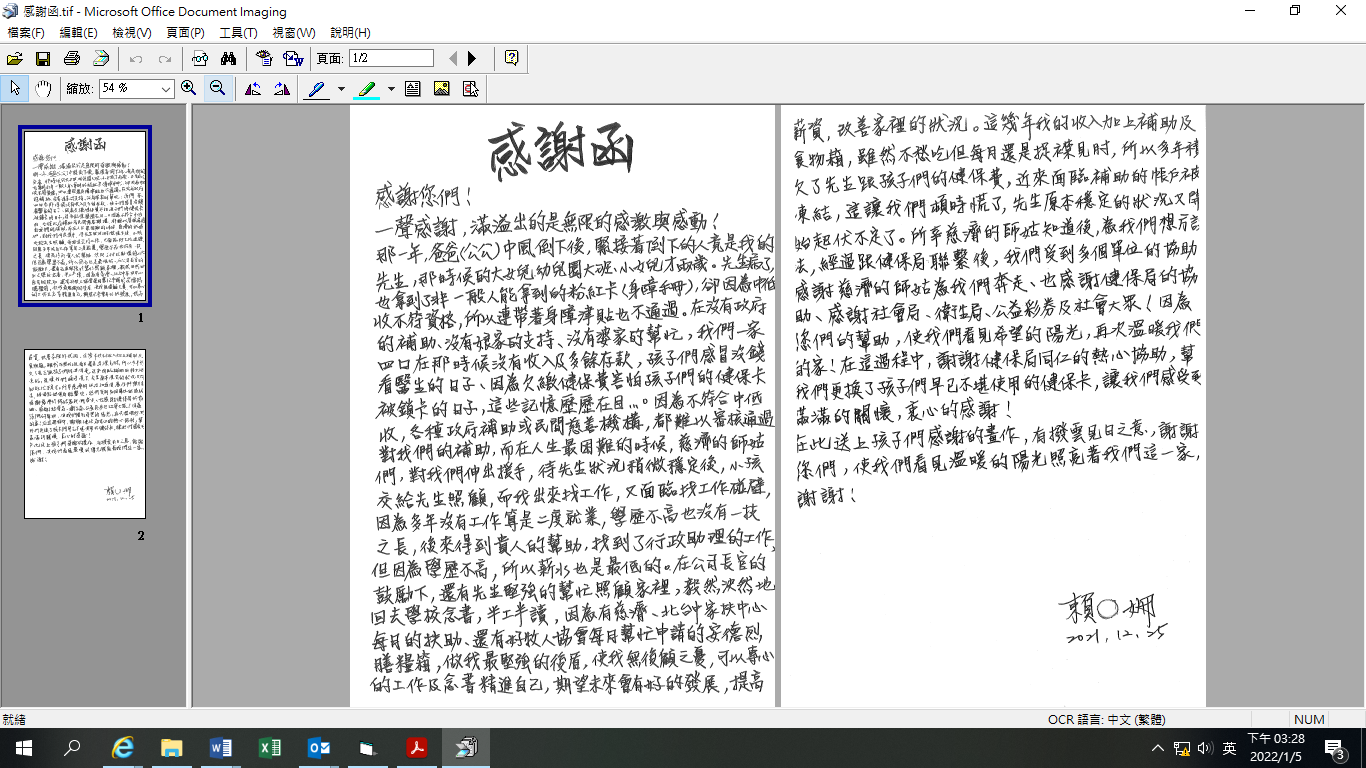 感謝函.tif - Microsoft Office Document Imaging
檔案(F) 編輯(E) 檢視(V) 頁面(P) 工具(T) 視窗(W) 說明(H)
頁面: 1/2
縮放: 54 %
1
2
感謝函
感謝您們！
一聲感謝，滿溢出的是無限的感激與感動！
那一年，爸爸(公公)中風倒下後，緊接著倒下的人竟是我的
先生，那時候的大女兒幼兒園大班、小女兒才兩歲。先生病了，
也拿到了非一般人能拿到的粉紅卡(身障手冊)，卻因為中低
收不符資格，所以連帶著身障津貼也不通過。在沒有政府
的補助、沒有娘家的支持、沒有婆家的幫忙，我們一家
四口在那時候沒有收入及多餘存款，孩子們感冒沒錢
看醫生的日子、因為欠繳健保費害怕孩子們的健保卡
被鎖卡的日子，這些記憶歷歷在目…。因為不符合中低
收，各種政府補助或民間慈善機構，都難以審核通過
對我們的補助，而在人生最困難的時候，慈濟的師姑
們，對我們伸出援手，待先生狀況稍做穩定後，小孩
交給先生照顧，而我出來找工作，又面臨找工作碰壁，
因為多年沒有工作算是二度就業，學歷不高也沒有一技
之長，後來得到貴人的幫助，找到了行政助理的工作，
但因為學歷不高，所以薪水也是最低的。在公司長官的
鼓勵下，還有先生堅強的幫忙照顧家裡，毅然決然地
回去學校念書，半工半讀，因為有慈濟、北台中家扶中心
每月的扶助、還有好牧人協會每月幫忙申請的安德烈
膳糧箱，做我最堅強的後盾，使我無後顧之憂，可以專心
的工作及念書精進自己，期望未來會有好的發展，提高
薪資，改善家裡的狀況。這幾年我的收入加上補助及
食物箱，雖然不愁吃但每月還是捉襟見肘，所以多年積
欠了先生跟孩子們的健保費，近來面臨補助的帳戶被
凍結，這讓我們頓時慌了，先生原本穩定的狀況又開
始起伏不定了。所幸慈濟的師姑知道後，為我們想方言
去，經過跟健保局聯繫後，我們受到多個單位的協助
感謝慈濟的師姑為我們奔走、也感謝健保局的協
助、感謝社會局、衛生局、公益彩券及社會大眾！因為
您們的幫助，使我們看見希望的陽光，再次溫暖我們
的家！在這過程中，謝謝健保局同仁的熱心協助，幫
我們更換了孩子們早已不堪使用的健保卡，讓我們感受更
滿滿的關懷，衷心的感謝！
在此送上孩子們感謝的畫作，有撥雲見日之意，謝謝
您們，使我們看見溫暖的陽光照亮著我們這一家，
謝謝！
賴○姍
2021.12.25
就緒
OCR 語言: 中文 (繁體)
NUM
英
下午 03:28
2022/1/5
3